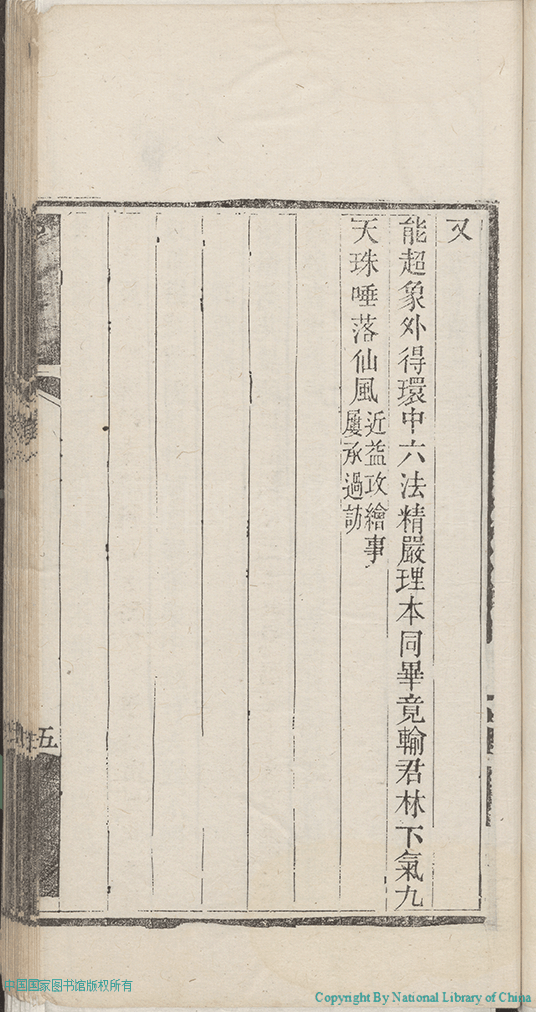 又
能超象外得環中六法精嚴理本同畢竟輸君林下氣九
天珠唾落仙風近益攻繪事屢承過訪
五
中国国家图书馆版权所有
Copyright By National Library of China